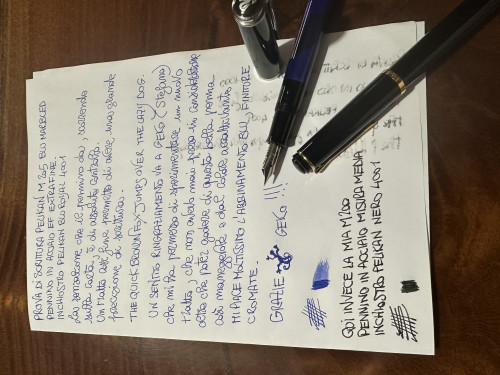 PROVA DI SCRITTURA PELIKAN M205 BLU MARBLED
PENNINO IN ACCIAIO EF EXTRAFINE
INCHIOSTRO PELIKAN BLU ROYAL 4001
La sensazione che il pennino dà, scorrendo
sulla carta, è di assoluto controllo.
Un tratto che permette di avere una grande
precisione di scrittura.
THE QUICK BROWN FOX JUMPS OVER THE LAZY DOG.
UN SENTITO RINGRAZIAMENTO VA A GEKO (Stefano)
che mi ha permesso di sperimentare un nuovo
tratto, che non avevo mai preso in considerazione
oltre che poter godere di questa bella penna
così maneggevole e dal colore accattivante.
MI PIACE MOLTISSIMO L'ABBINAMENTO BLU, FINITURE
CROMATE.
GRAZIE GEKO !!!
QUI INVECE LA MIA M200
PENNINO IN ACCIAIO MISURA MEDIA
INCHIOSTRO PELIKAN NERO 4001